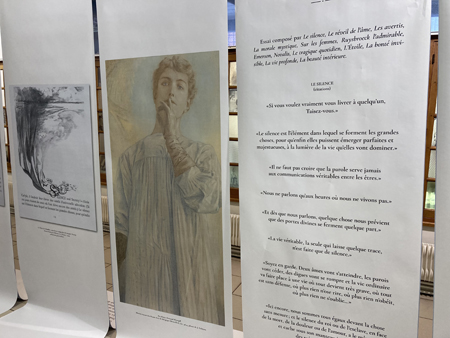 Essai composé par Le silence, Le réveil de l'âme, Les avertis,
La morale mystique, Sur les femmes, Ruysbroeck l'admirable,
Emerson, Novalis, Le tragique quotidien, L'Étoile, La bonté invi-
sible, La vie profonde, La beauté intérieure.
LE SILENCE
«Si vous voulez vraiment vous livrer à quelqu'un,
Taisez-vous.»
«Le silence est l'élément dans lequel se forment les grandes
choses, pour qu'enfin elles puissent émerger parfaites et
majestueuses, à la lumière de la vie qu'elles vont dominer.»
«Il ne faut pas croire que la parole serve jamais
aux communications véritables entre les êtres.»
«Nous ne parlons qu'aux heures où nous ne vivons pas.»
«Et dès que nous parlons, quelque chose nous prévient
que des portes divines se ferment quelque part.»
«La vie véritable, la seule qui laisse quelque trace,
n'est faite que de silence.»
«Soyez en garde. Deux âmes vont s'atteindre, les parois
vont céder, des digues vont se rompre et la vie ordinaire
va faire place à une vie où tout devient très grave, où tout
est sans défense, où plus rien n'ose rire, où plus rien n'obéit,
où plus rien ne s'oublie...»